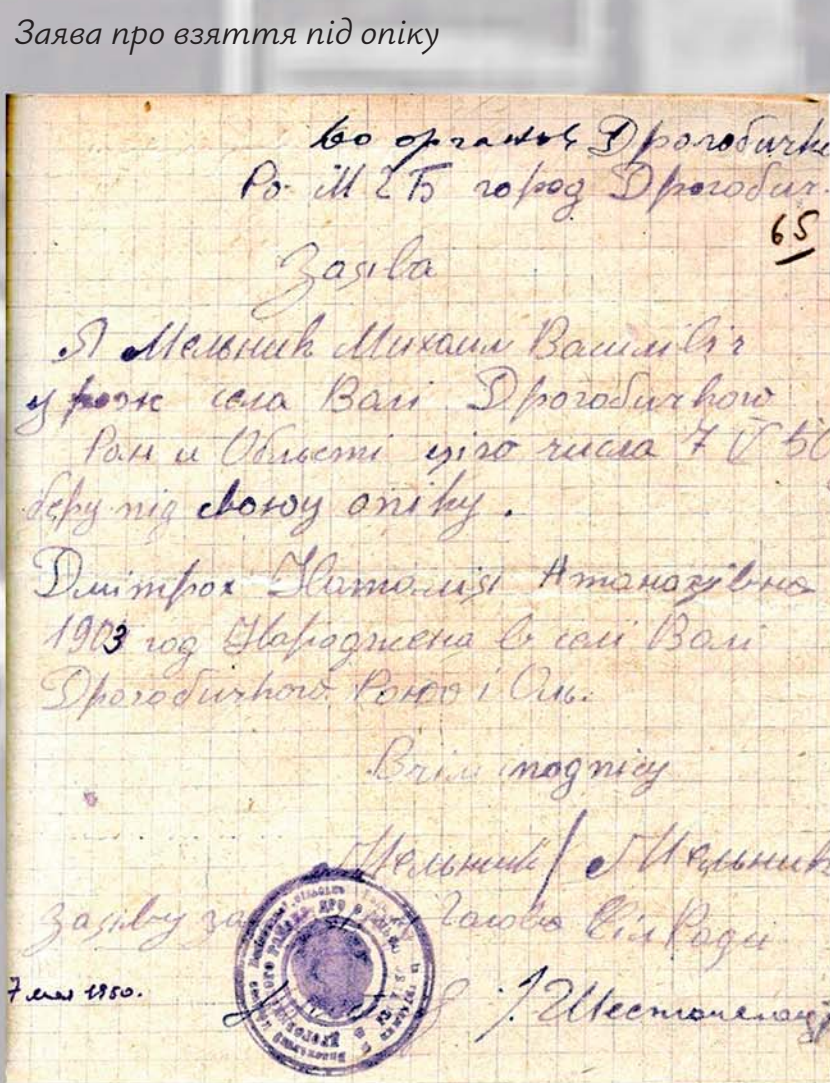 Заява про взяття під опіку
во органів Дрогобичко
Ро МГБ город Дрогобич
65
Заява
Я Мельник Михаил Василівіч
урож села Валі Дрогобичкого
Рай и Області цего числа 7 V 50
беру під свою опіку.
Дмітрох Наталія Атаназівна
1903 год Народжена в селі Валі
Дрогобичкого і
Вчім подпісу
Мельник / Мельник
Заяву Голова Сіл Ради
7 мая 1950.